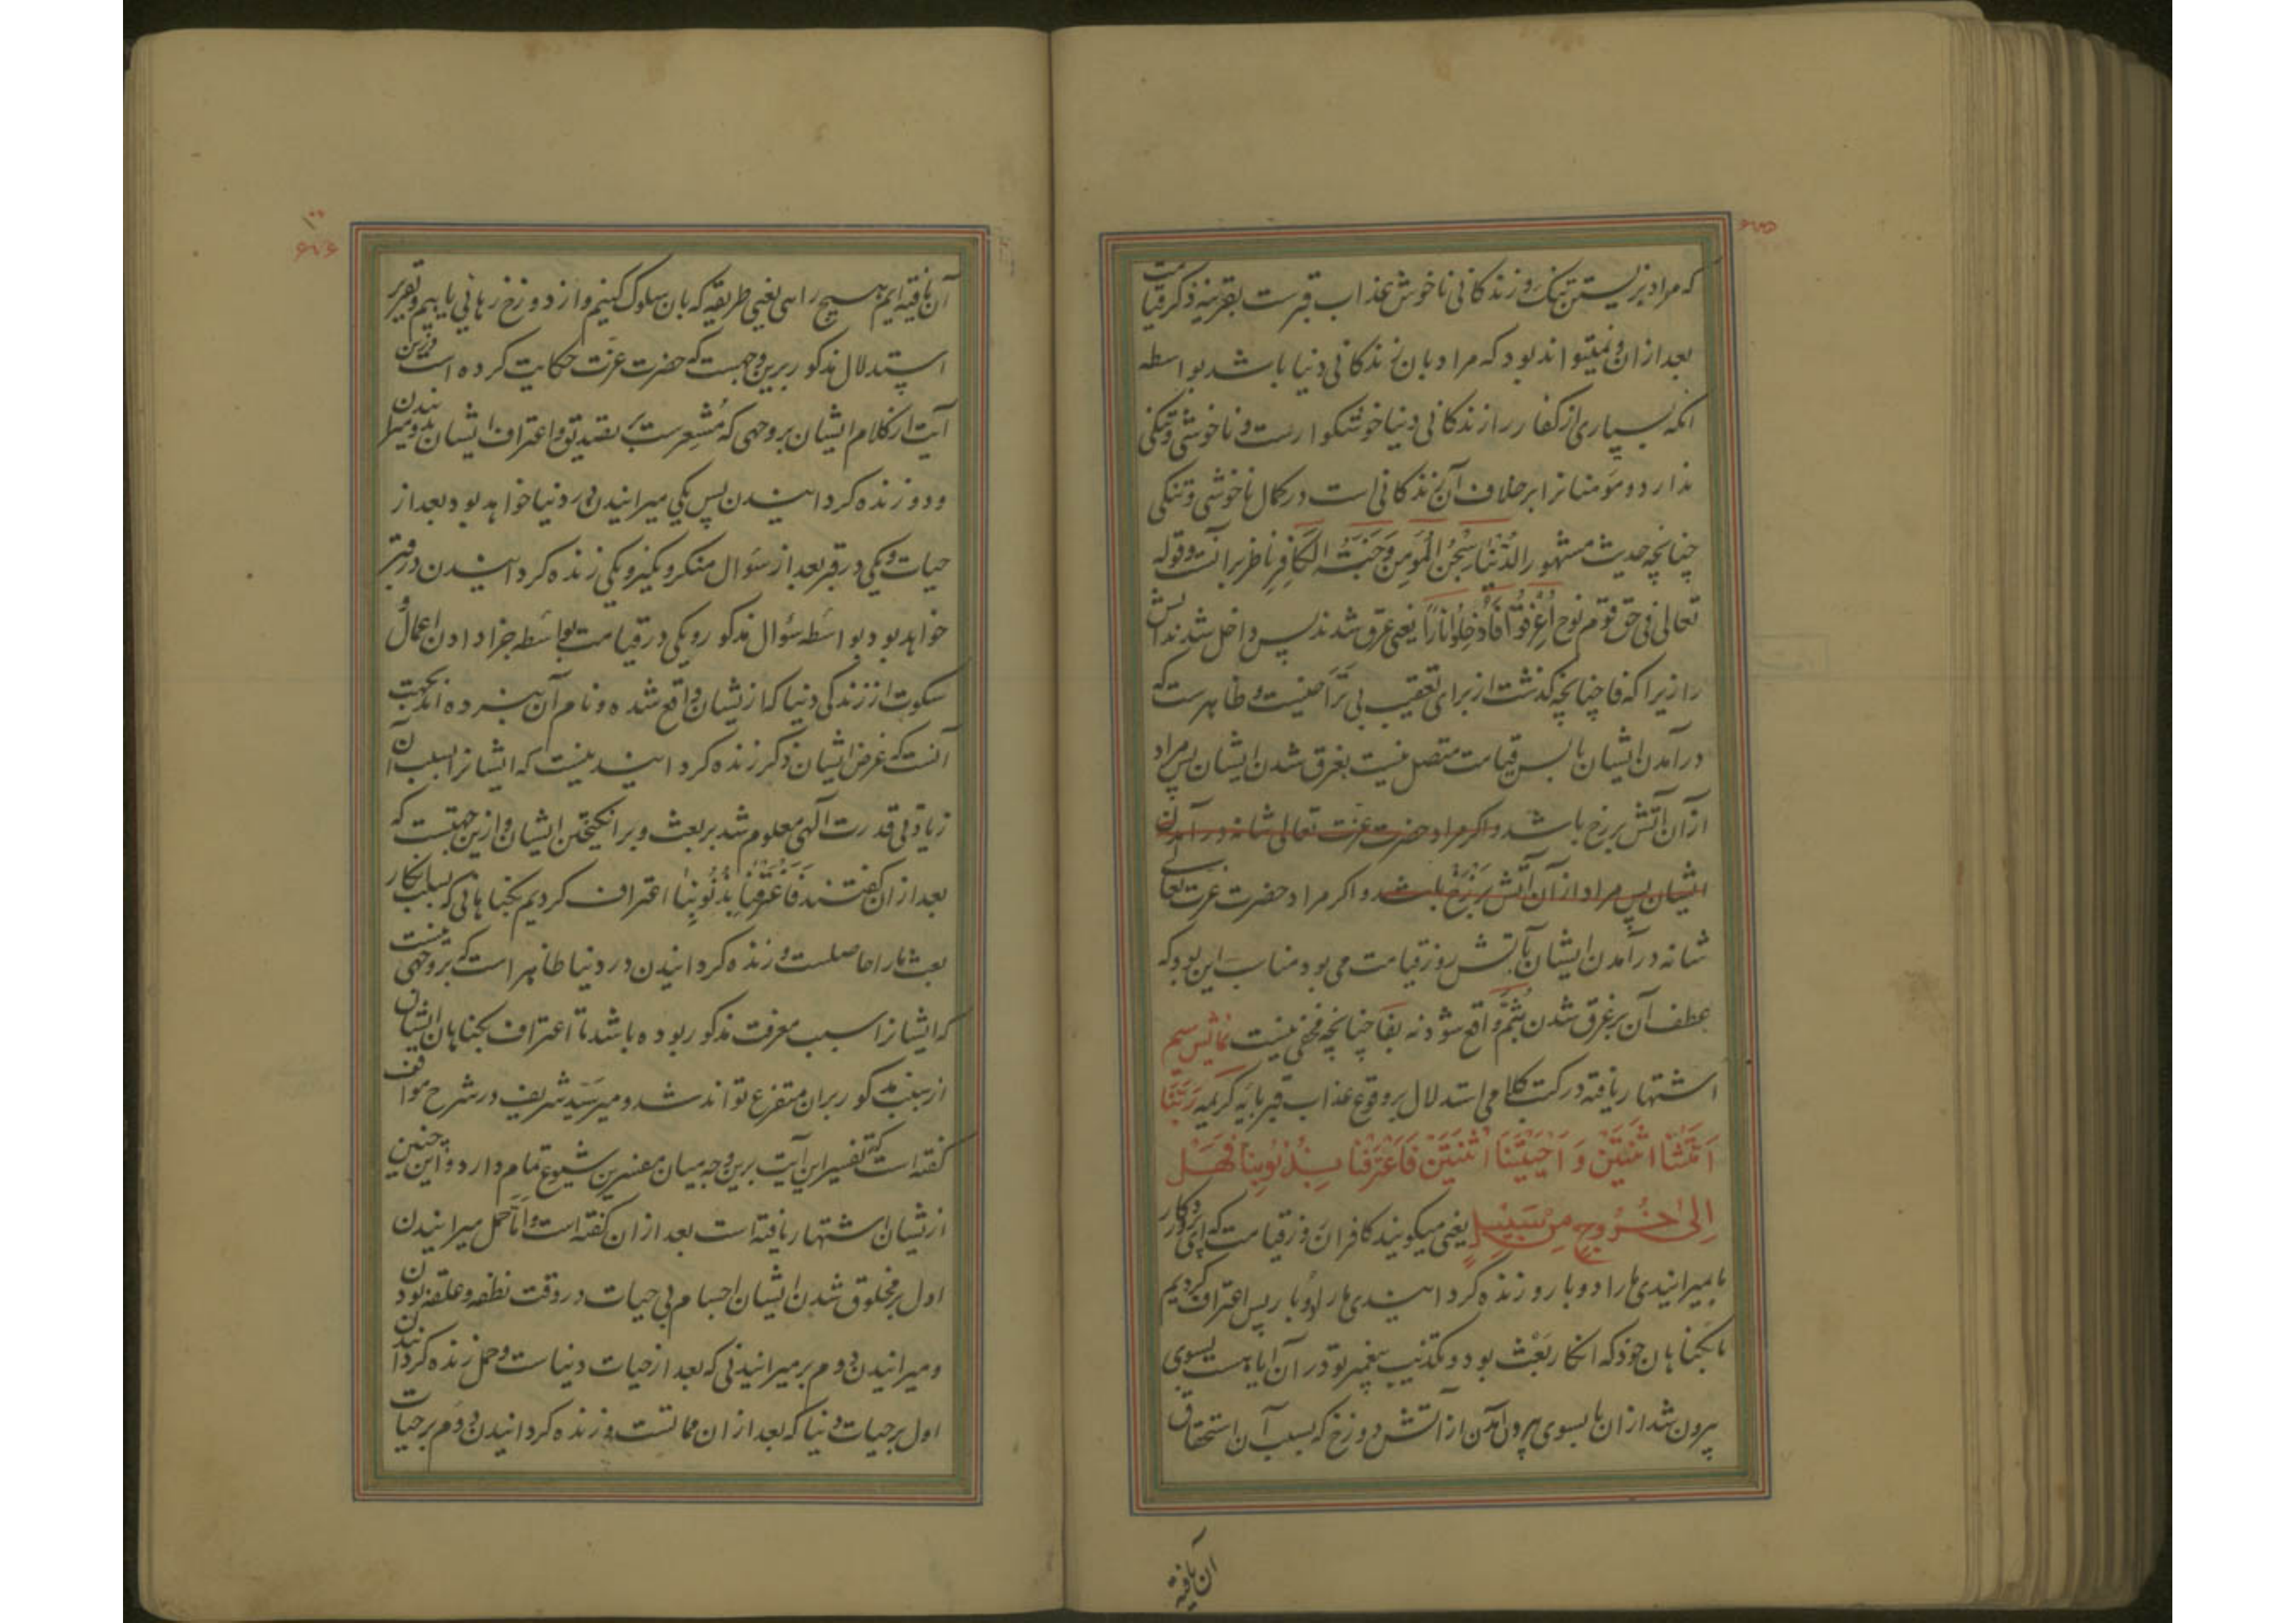 ۶۷۵
که مراد بزیستن تنک و زندکانی ناخوش عذاب قبرست بقرینه ذکر قیامت
بعد از ان و نمیتواند بود که مراد بان زندکانی دنیا باشد بواسطه
انکه بسیاری از کفار را زندکانی دنیا خوشکوارست و ناخوشی و تنکی
ندارد و مؤمنانرا برخلاف آن زندکانی است در کمال ناخوشی و تنکی
چنانچه حدیث مشهور الدُّنْیَا سِجْنُ الْمُؤمِنِ وَجَنَّتُه الْکَافِرِ ناظر بر انست و قوله
تعالی فی حق قوم نوح اُغْرِقُوْا فَاُدْخِلُوْا نَارًا یعنی غرق شدند پس داخل شدند آتش
را زیرا که فا چنانچه کذشت از برای تعقیب بی تراخیست و ظاهرست که
درآمدن ایشان باتش قیامت متصل نیست بغرق شدن ایشان پس مراد
ازان آتش برزخ باشد و اکر مراد حضرت عزت تعالی شانه درآمدن
ایشان پس مراد از آن آتش بَرْزَخْ باشد و اکر مراد حضرت عزت تعالی
شانه درآمدن ایشان بآتش روز قیامت می بود مناسب این بود که
عطف آن بر غرق شدن بثُمَّ واقع شود نه بفا چنانچه مخفی نیست
اشتهار یافته در کتب کلامی استدلال بر وقوع عذاب قبر بآیه کریمه رَبَّنَا
اَمَتَّنَا اثْنَتَیْنِ وَ اَحْیَیْتَنَا اثْنَتَیْنِ فَاعْتَرَفْنَا بِذُنُوبِنَا فَهَلْ
اِلیٰ خُرُوجٍ مِنْ سَبِیْلٍ یعنی میکویند کافران روز قیامت که ای پروردکار
ما میرانیدی ما را دو بار و زنده کردانیدی ما را دو بار پس اعتراف کردیم
ما بکناهان خود که انکار بَعْث بود و تکذیب پیغمبر تو در آن آیا هست بسوی
بیرون شد ازان یا بسوی بیرون آمدن از آتش دوزخ که بسبب آن استحقاق
آن یافته
۱۰۰
۶۷۶
آن یافته ایم هیچ راهی یعنی طریقه که بان سلوک کنیم و از دوزخ رهائی یابیم و تقریر
استدلال مذکور برین وجهست که حضرت عزّت حکایت کرده است درین
آیت از کلام ایشان بر وجهی که مُشْعِرست بر تصدیق و اعتراف ایشان بدو میرانیدن
و دو زنده کردانیدن پس یکی میرانیدن در دنیا خواهد بود بعد از
حیات و یکی در قبر بعد از سؤال منکر و نکیر و یکی زنده کردانیدن در قبر
خواهد بود بواسطه سؤال مذکور و یکی در قیامت بواسطه جزا دادن اعمال و
سکوت از زندکی دنیا که از یشان واقع شده و نام آن نبرده اند بجهت
آنست که غرض ایشان ذکر زنده کردانیدنیست که ایشانرا بسبب آن
زیادتی قدرت آلهی معلوم شد بر بعث و برانکیختن ایشان و ازین جهتست که
بعد ازان کفتند فَاعْتَرَفْنَا بِذُنُوبِنَا اعتراف کردیم بکناهانی که بسبب انکار
بعث ما را حاصلست و زنده کردانیدن در دنیا ظاهر است که بر وجهی نیست
که ایشانرا سبب معرفت مذکور بوده باشد تا اعتراف بکناهان ایشان
از سبب مذکور بران متفرع تواند شد و میر سَیّد شریف در شرح مواقف
کفته است که تفسیر این آیت برین وجه میان مفسرین شیوع تمام دارد و این چنین
از یشان اشتهار یافته است بعد ازان کفته است و اَمّا حمل میرانیدن
اول بر مخلوق شدن ایشان اجسام بی حیات در وقت نطفه و علقه بودن
و میرانیدن دوم بر میرانیدنی که بعد از حیات دنیاست و حمل زنده کردانیدن
اول بر حیات دنیا که بعد ازان مماتست و زنده کردانیدن دوم بر حیات